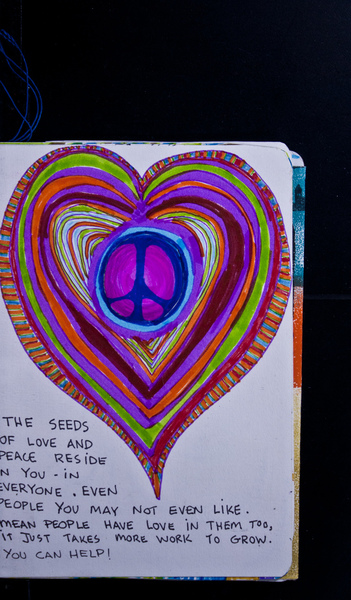 THE SEEDS
OF LOVE AND
PEACE RESIDE
IN YOU - IN
EVERYONE. EVEN
PEOPLE YOU MAY NOT EVEN LIKE.
MEAN PEOPLE HAVE LOVE IN THEM TOO,
IT JUST TAKES MORE WORK TO GROW.
YOU CAN HELP!